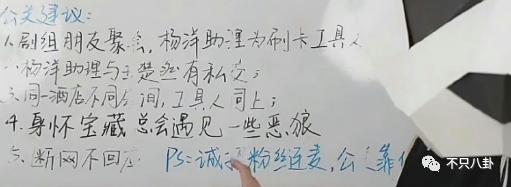 公关建议:
1.剧组朋友聚会,杨洋助理为刷卡工具人
杨洋助理与王楚然有私交;
3.同一酒店不同房间,工具人同上;
4.身怀宝藏总会遇见一些恶狼
5.断网不回应 PS:诚 粉丝连麦,公 靠
不只八卦